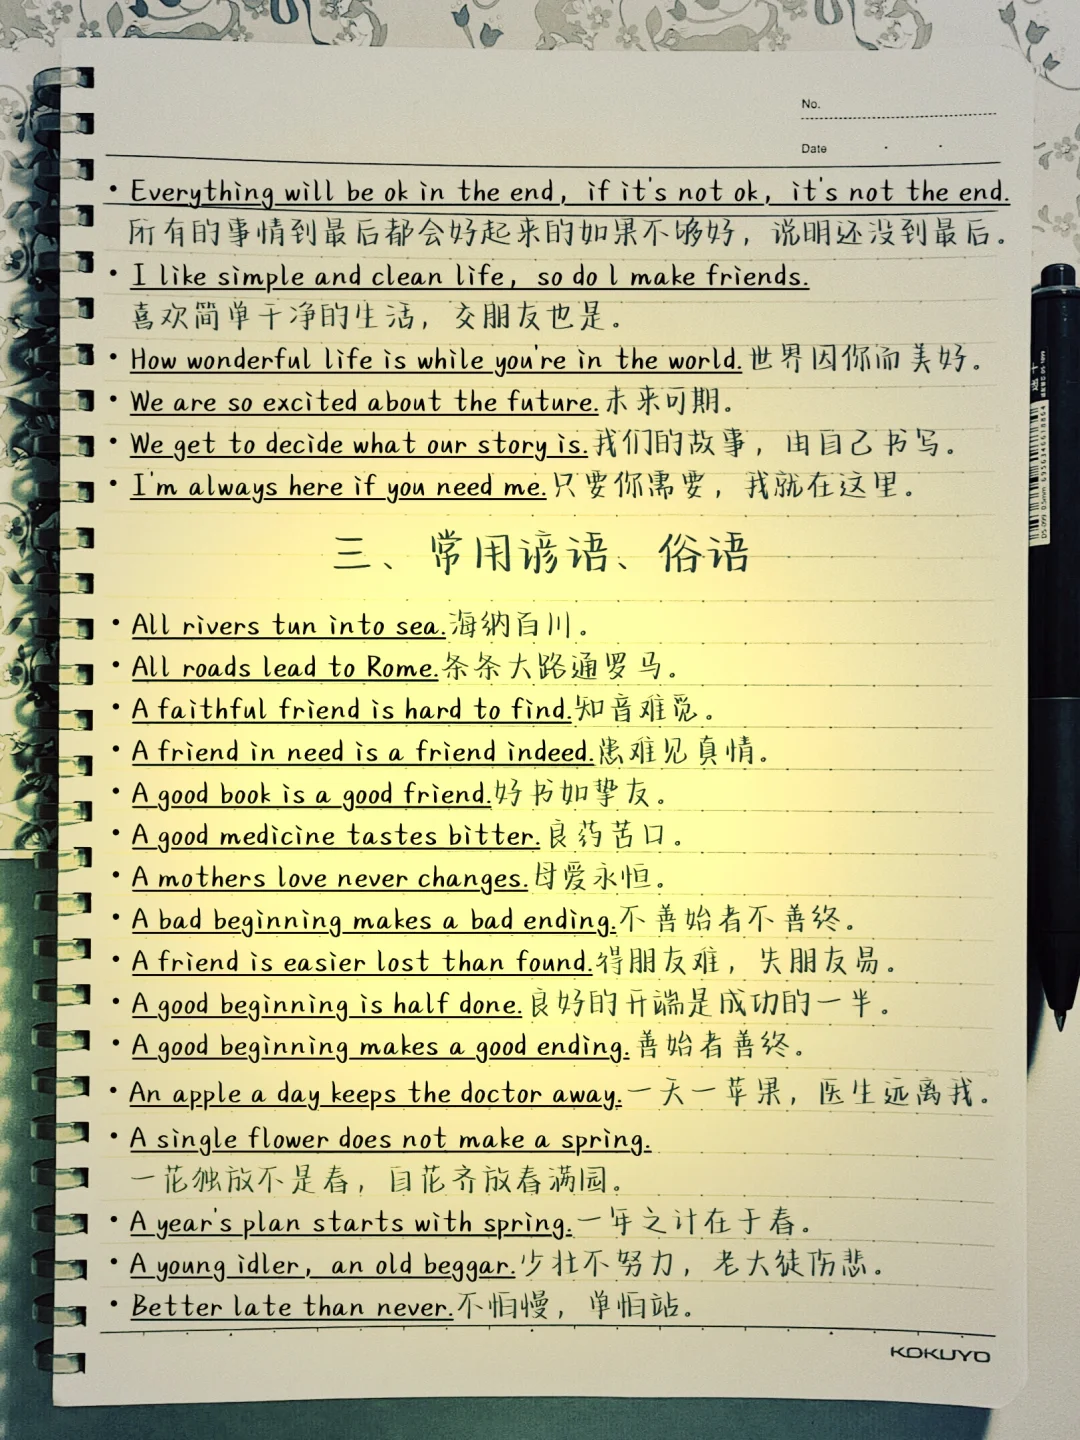 No.
Date
• Everything will be ok in the end, if it's not ok, it's not the end.
所有的事情到最后都会好起来的如果不够好，说明还没到最后。
• I like simple and clean life, so do l make friends.
喜欢简单干净的生活，交朋友也是。
• How wonderful life is while you're in the world.世界因你而美好。
• We are so excited about the future.未来可期。
• We get to decide what our story is.我们的故事，由自己书写。
• I'm always here if you need me.只要你需要，我就在这里。
三、常用谚语、俗语
• All rivers tun into sea.海纳百川。
• All roads lead to Rome.条条大路通罗马。
• A faithful friend is hard to find.知音难觅。
• A friend in need is a friend indeed.患难见真情。
• A good book is a good friend.好书如挚友。
• A good medicine tastes bitter.良药苦口。
• A mothers love never changes.母爱永恒。
• A bad beginning makes a bad ending.不善始者不善终。
• A friend is easier lost than found.得朋友难，失朋友易。
• A good beginning is half done.良好的开端是成功的一半。
• A good beginning makes a good ending.善始者善终。
• An apple a day keeps the doctor away.一天一苹果，医生远离我。
• A single flower does not make a spring.
一花独放不是春，百花齐放春满园。
• A year's plan starts with spring.一年之计在于春。
• A young idler, an old beggar.少壮不努力，老大徒伤悲。
• Better late than never.不怕慢，单怕站。
KOKUYO